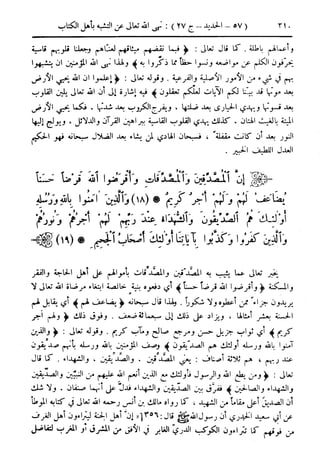 ٣١٠ (٥٧ – الحديد – ج ٢٧) : نهى الله تعالى عن التشبه بأهل الكتاب
وأعمالهم باطلة . كما قال تعالى : ﴿ فبما نقضهم ميثاقهم لعناهم وجعلنا قلوبهم قاسية
يحرفون الكلم عن مواضعه ونسوا حظاً مما ذكروا به ﴾ ولهذا نهى الله المؤمنين أن يتشبهوا
بهم في شيء من الأمور الأصلية والفرعية . وقوله تعالى : ﴿ إعلموا أن الله يحيي الأرض
بعد موتها قد بينا لكم الآيات لعلكم تعقلون ﴾ فيه إشارة إلى أن الله تعالى يلين القلوب
بعد قسوتها ويهدي الحيارى بعد ضلتها . ويفرج الكروب بعد شدتها . فكما يحيي الأرض
الميتة بالغيث الهتان . كذلك يهدي القلوب القاسية ببراهين القرآن والدلائل . ويولج إليها
النور بعد أن كانت مقفلة ، فسبحان الهادي لمن يشاء بعد الضلال سبحانه فهو الحكيم
العدل اللطيف الخبير .
إِنَّ ٱلْمُصَّدِّقِينَ وَٱلْمُصَّدِّقَاتِ وَأَقْرَضُوا۟ ٱللَّهَ قَرْضًا حَسَنًا
يُضَاعَفُ لَهُمْ وَلَهُمْ أَجْرٌ كَرِيمٌ (١٨) وَٱلَّذِينَ ءَامَنُوا۟ بِٱللَّهِ وَرُسُلِهِ
أُو۟لَٰٓئِكَ هُمُ ٱلصِّدِّيقُونَ وَٱلشُّهَدَآءُ عِندَ رَبِّهِمْ لَهُمْ أَجْرُهُمْ وَنُورُهُمْ
وَٱلَّذِينَ كَفَرُوا۟ وَكَذَّبُوا۟ بِـَٔايَاتِنَآ أُو۟لَٰٓئِكَ أَصْحَابُ ٱلْجَحِيمِ (١٩)
يخبر تعالى عما يثيب به المصدقين والمصدقات بأموالهم على أهل الحاجة والفقر
والمسكنة ﴿ وأقرضوا الله قرضاً حسناً ﴾ أي دفعوه بنية خالصة ابتغاء مرضاة الله تعالى لا
يريدون جزاء ممن أعطوه ولا شكوراً . فلهذا قال سبحانه ﴿ يضاعف لهم ﴾ أي يقابل لهم
الحسنة بعشر أمثالها ، ويزاد على ذلك إلى سبعمائة ضعف . وفوق ذلك ﴿ ولهم أجر
كريم ﴾ أي ثواب جزيل حسن ومرجع صالح ومآب كريم . وقوله تعالى : ﴿ والذين
آمنوا بالله ورسله أولئك هم الصديقون ﴾ وصف المؤمنين بالله ورسله بأنهم صديقون
عند ربهم ، هم ثلاثة أصناف : يعني المصدقين . والصديقين ، والشهداء . كما قال
تعالى : ﴿ ومن يطع الله والرسول فأولئك مع الذين أنعم الله عليهم من النبيين والصديقين
والشهداء والصالحين ﴾ ففرق بين الصديقين والشهداء فدل على أنهما صنفان . ولا شك
أن الصديق أعلى مقاماً من الشهيد ، كما رواه مالك بن أنس رحمه الله تعالى في كتابه الموطأ
عن أبي سعيد الخدري أن رسول الله ﷺ قال : ٣٥٦ « إن أهل الجنة ليتراءون أهل الغرف
من فوقهم كما تتراءون الكوكب الدري الغابر في الأفق من المشرق أو المغرب لتفاضل